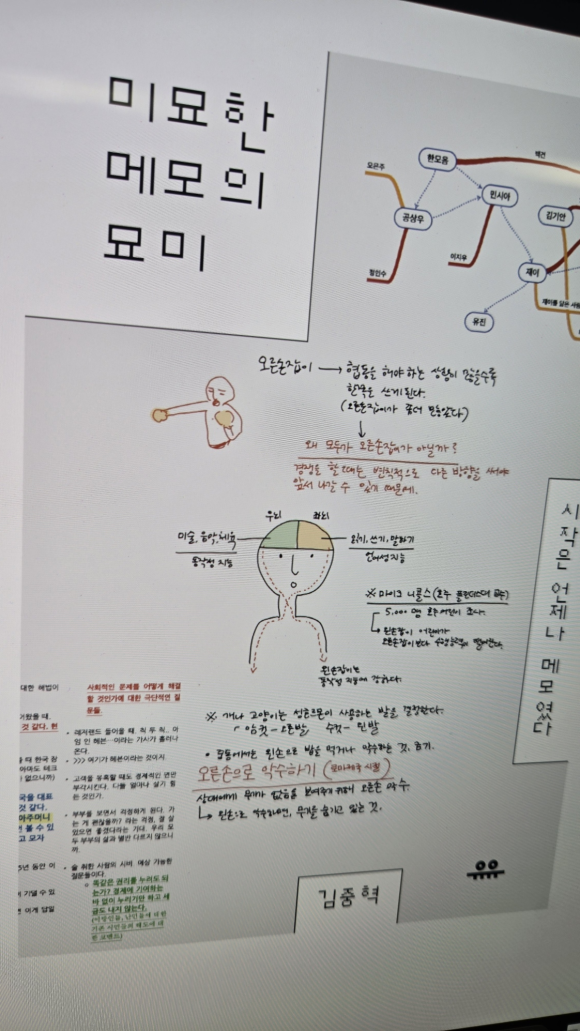 미묘한
메모의
묘미
모은주
한모음
백건
민시아
공상우
김기만
정인수
이지우
재이
재이를 닮은 사람
유진
오른손잡이 → 협동을 해야 하는 상황이 많을수록
한쪽을 쓰게 된다.
(오른손잡이가 좀더 많았다)
왜 모두가 오른손잡이가 아닐까?
경쟁을 할 때는 변칙적으로 다른 방향을 써야
앞서 나갈 수 있기 때문에.
우뇌
좌뇌
미술, 음악, 체육
동작성 지능
읽기, 쓰기, 말하기
언어성 지능
※ 마이크 니콜스 (호주 플린더스대 교수)
5,000명 호주 어린이 조사.
왼손잡이 어린이가
오른손잡이보다 떨어진다.
왼손잡이는
동작성 지능에 강하다.
※ 개나 고양이는 성호르몬이 사용하는 발을 결정한다.
암컷 - 오른발 수컷 - 왼발
• 중동에서는 왼손으로 밥을 먹거나 악수하는 것, 금기.
오른손으로 악수하기 (로마제국 시절)
상대에게 무기가 없음을 보여주기 위해서 오른손 악수.
↳ 왼손으로 악수하면, 무기를 숨기고 있는 것.
시작은 언제나 메모였다
대한 해법이
사회적인 문제를 어떻게 해결
할 것인가에 대한 극단적인 질
문들.
• 레저랜드 들어올 때, 척 두 척.. 아
임 인 헤븐…이라는 가사가 흘러나
온다.
• >>> 여기가 헤븐이라는 것이지.
• 고객을 유혹할 때도 경제적인 면만
부각시킨다. 나를 얼마나 살기 힘
든 것인가.
• 부부을 보면서 걱정하게 된다. 가
는 게 괜찮을까? 라는 걱정, 잘 살
있으면 좋겠다라는 기대. 우리 모
두 부부의 삶과 별반 다르지 않으니
까.
• 술 취한 사람의 시비, 예상 가능한
질문들이다.
똑같은 권리를 누려도 되
는가? 경제에 기여하는
바 없이 누리기만 하고 세
금도 내지 않는다.
같다. 한
때 한국 잠
아마도 테크
없으니까)
국을 대표
것 같다.
아주머니
볼 수 있
고 모자
5년 동안 이
기댈 수 있
이게 답일
김중혁